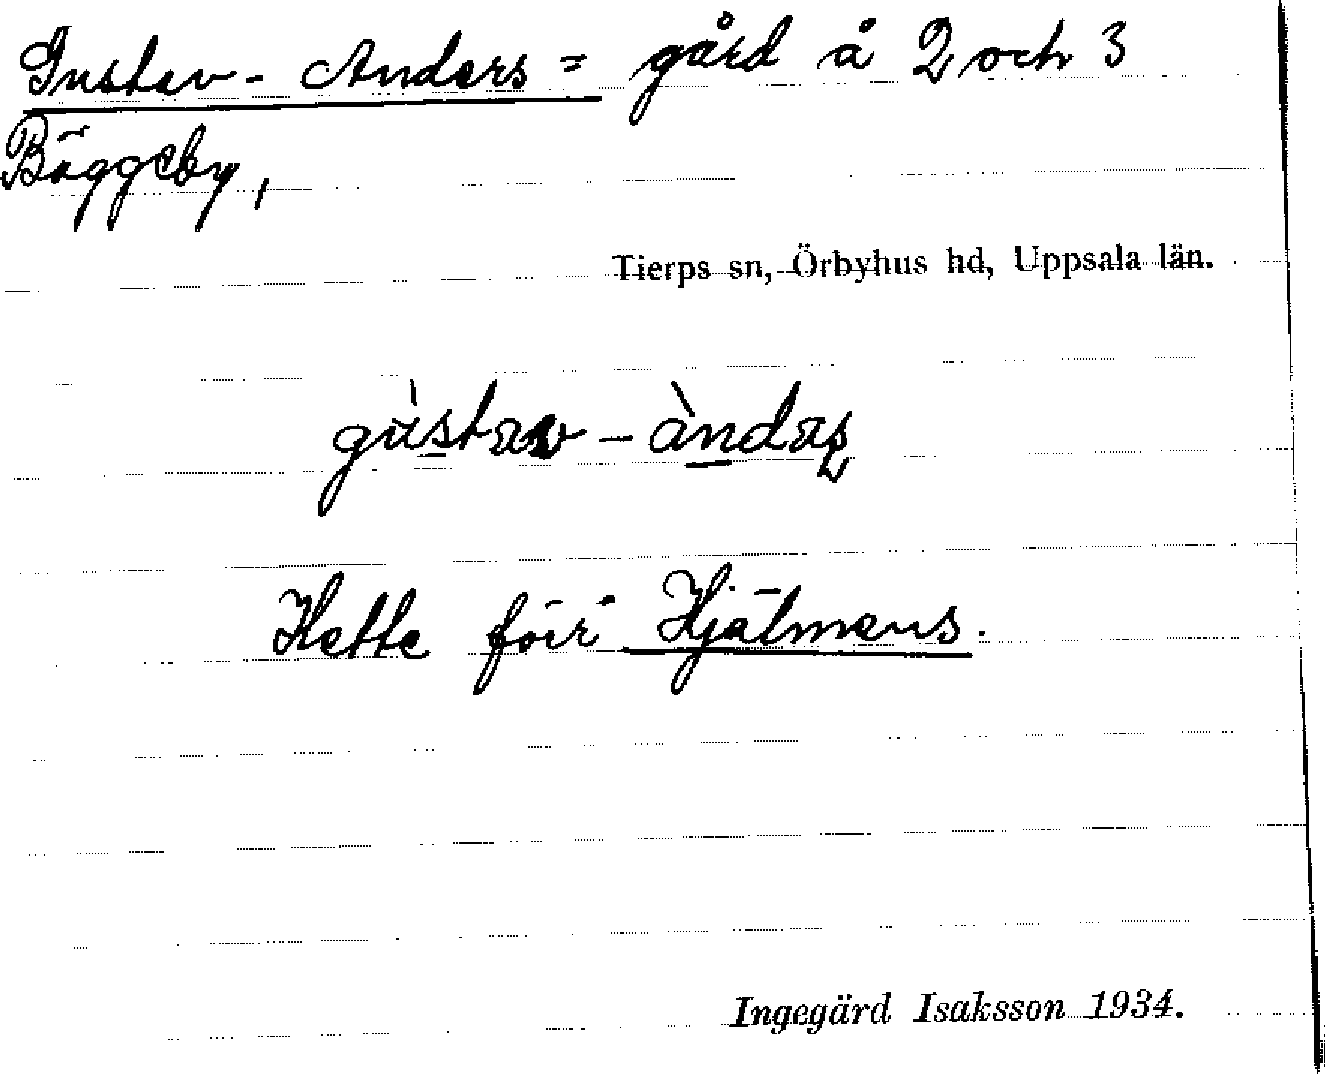 Gustav-Anders = gård å 2 och 3
Bäggeby,
Tierps sn, Örbyhus hd, Uppsala län.
gùstav – àndaʂ
Hette förr Hjälmens.
Ingegärd Isaksson 1934.